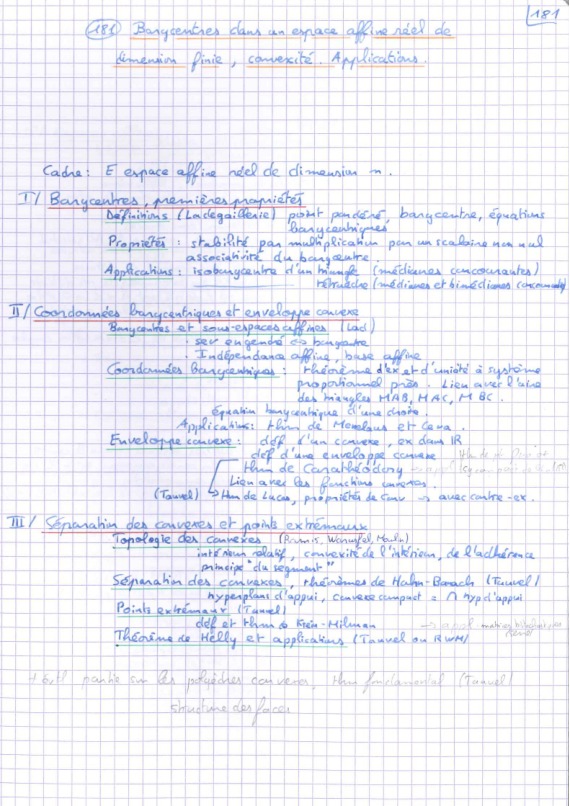 181
(181) Barycentres dans un espace affine réel de
dimension finie, convexité. Applications.
Cadre : E espace affine réel de dimension n.
I/ Barycentres, premières propriétés
Définitions (Ladegaillerie) point pondéré, barycentre, équations
barycentriques
Propriétés : stabilité par multiplication par un scalaire non nul
associativité du barycentre.
Applications : isobarycentre d'un triangle (médianes concourantes)
tétraèdre (médianes et bimédianes concourantes)
II/ Coordonnées barycentriques et enveloppe convexe
Barycentres et sous-espaces affines (Lad)
• sev engendré ⇔ barycentre
• Indépendance affine, base affine
Coordonnées barycentriques : théorème d'ex et d'unicité à système
proportionnel près. Lien avec l'aire
des triangles MAB, MAC, MBC.
Équation barycentrique d'une droite.
Applications : thm de Menelaus et Ceva.
Enveloppe convexe : déf d'un convexe, ex dans IR
déf d'une enveloppe convexe
thm de Carathéodory → appl
Lien avec les fonctions convexes.
(Tauvel) thm de Lucas, propriétés de Conv → avec contre-ex.
III/ Séparation des convexes et points extrémaux
Topologie des convexes
intérieur relatif, convexité de l'intérieur, de l'adhérence
principe "du segment"
Séparation des convexes, théorèmes de Hahn-Banach (Tauvel)
hyperplans d'appui, convexe compact = ∩ hyp d'appui
Points extrémaux (Tauvel)
déf et thm de Krein-Milman → appl matrices
Théorème de Helly et applications (Tauvel ou RWM)
partie sur les polyèdres convexes, thm fondamental (Tauvel)
structure des faces